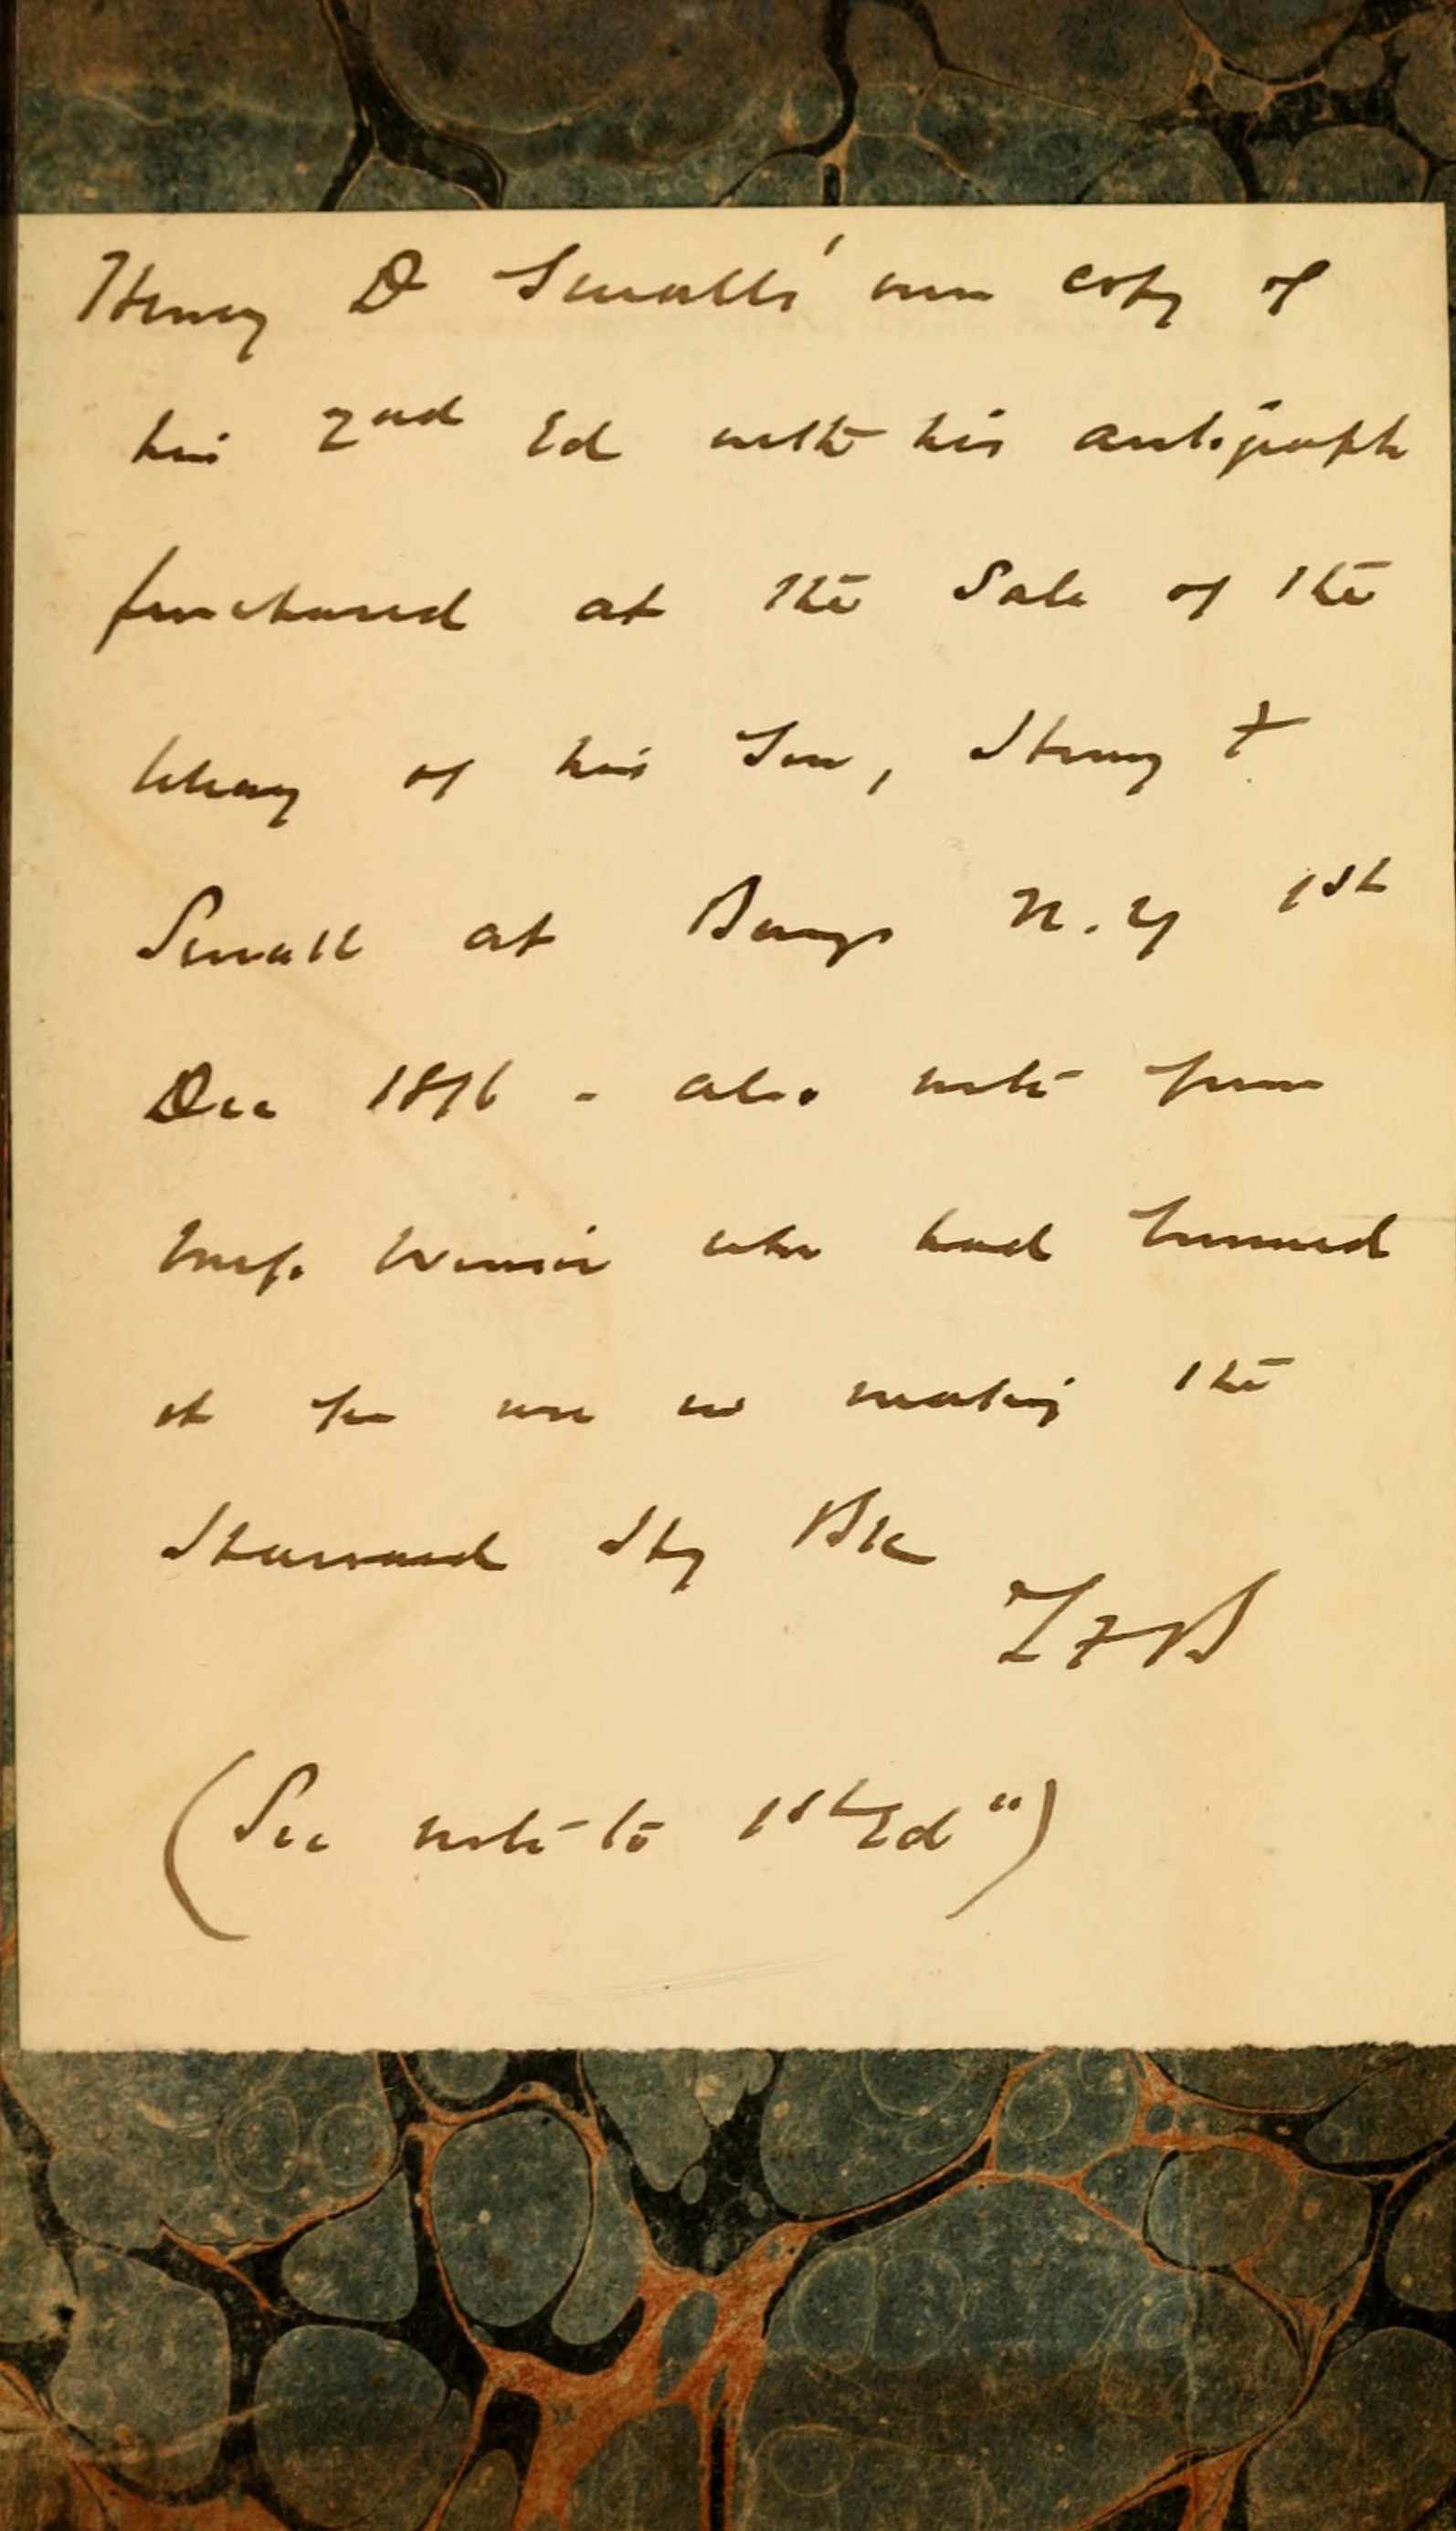 Henry D Sewalls' own copy of
his 2nd Ed with his autograph
purchased at the Sale of the
library of his Son, Henry F
Sewall at Bangs N.Y 1st
Dec 1896 - also note from
who had
it for use in making the
Harvard Hy Bk
LFB
(See note to 1st Ed")